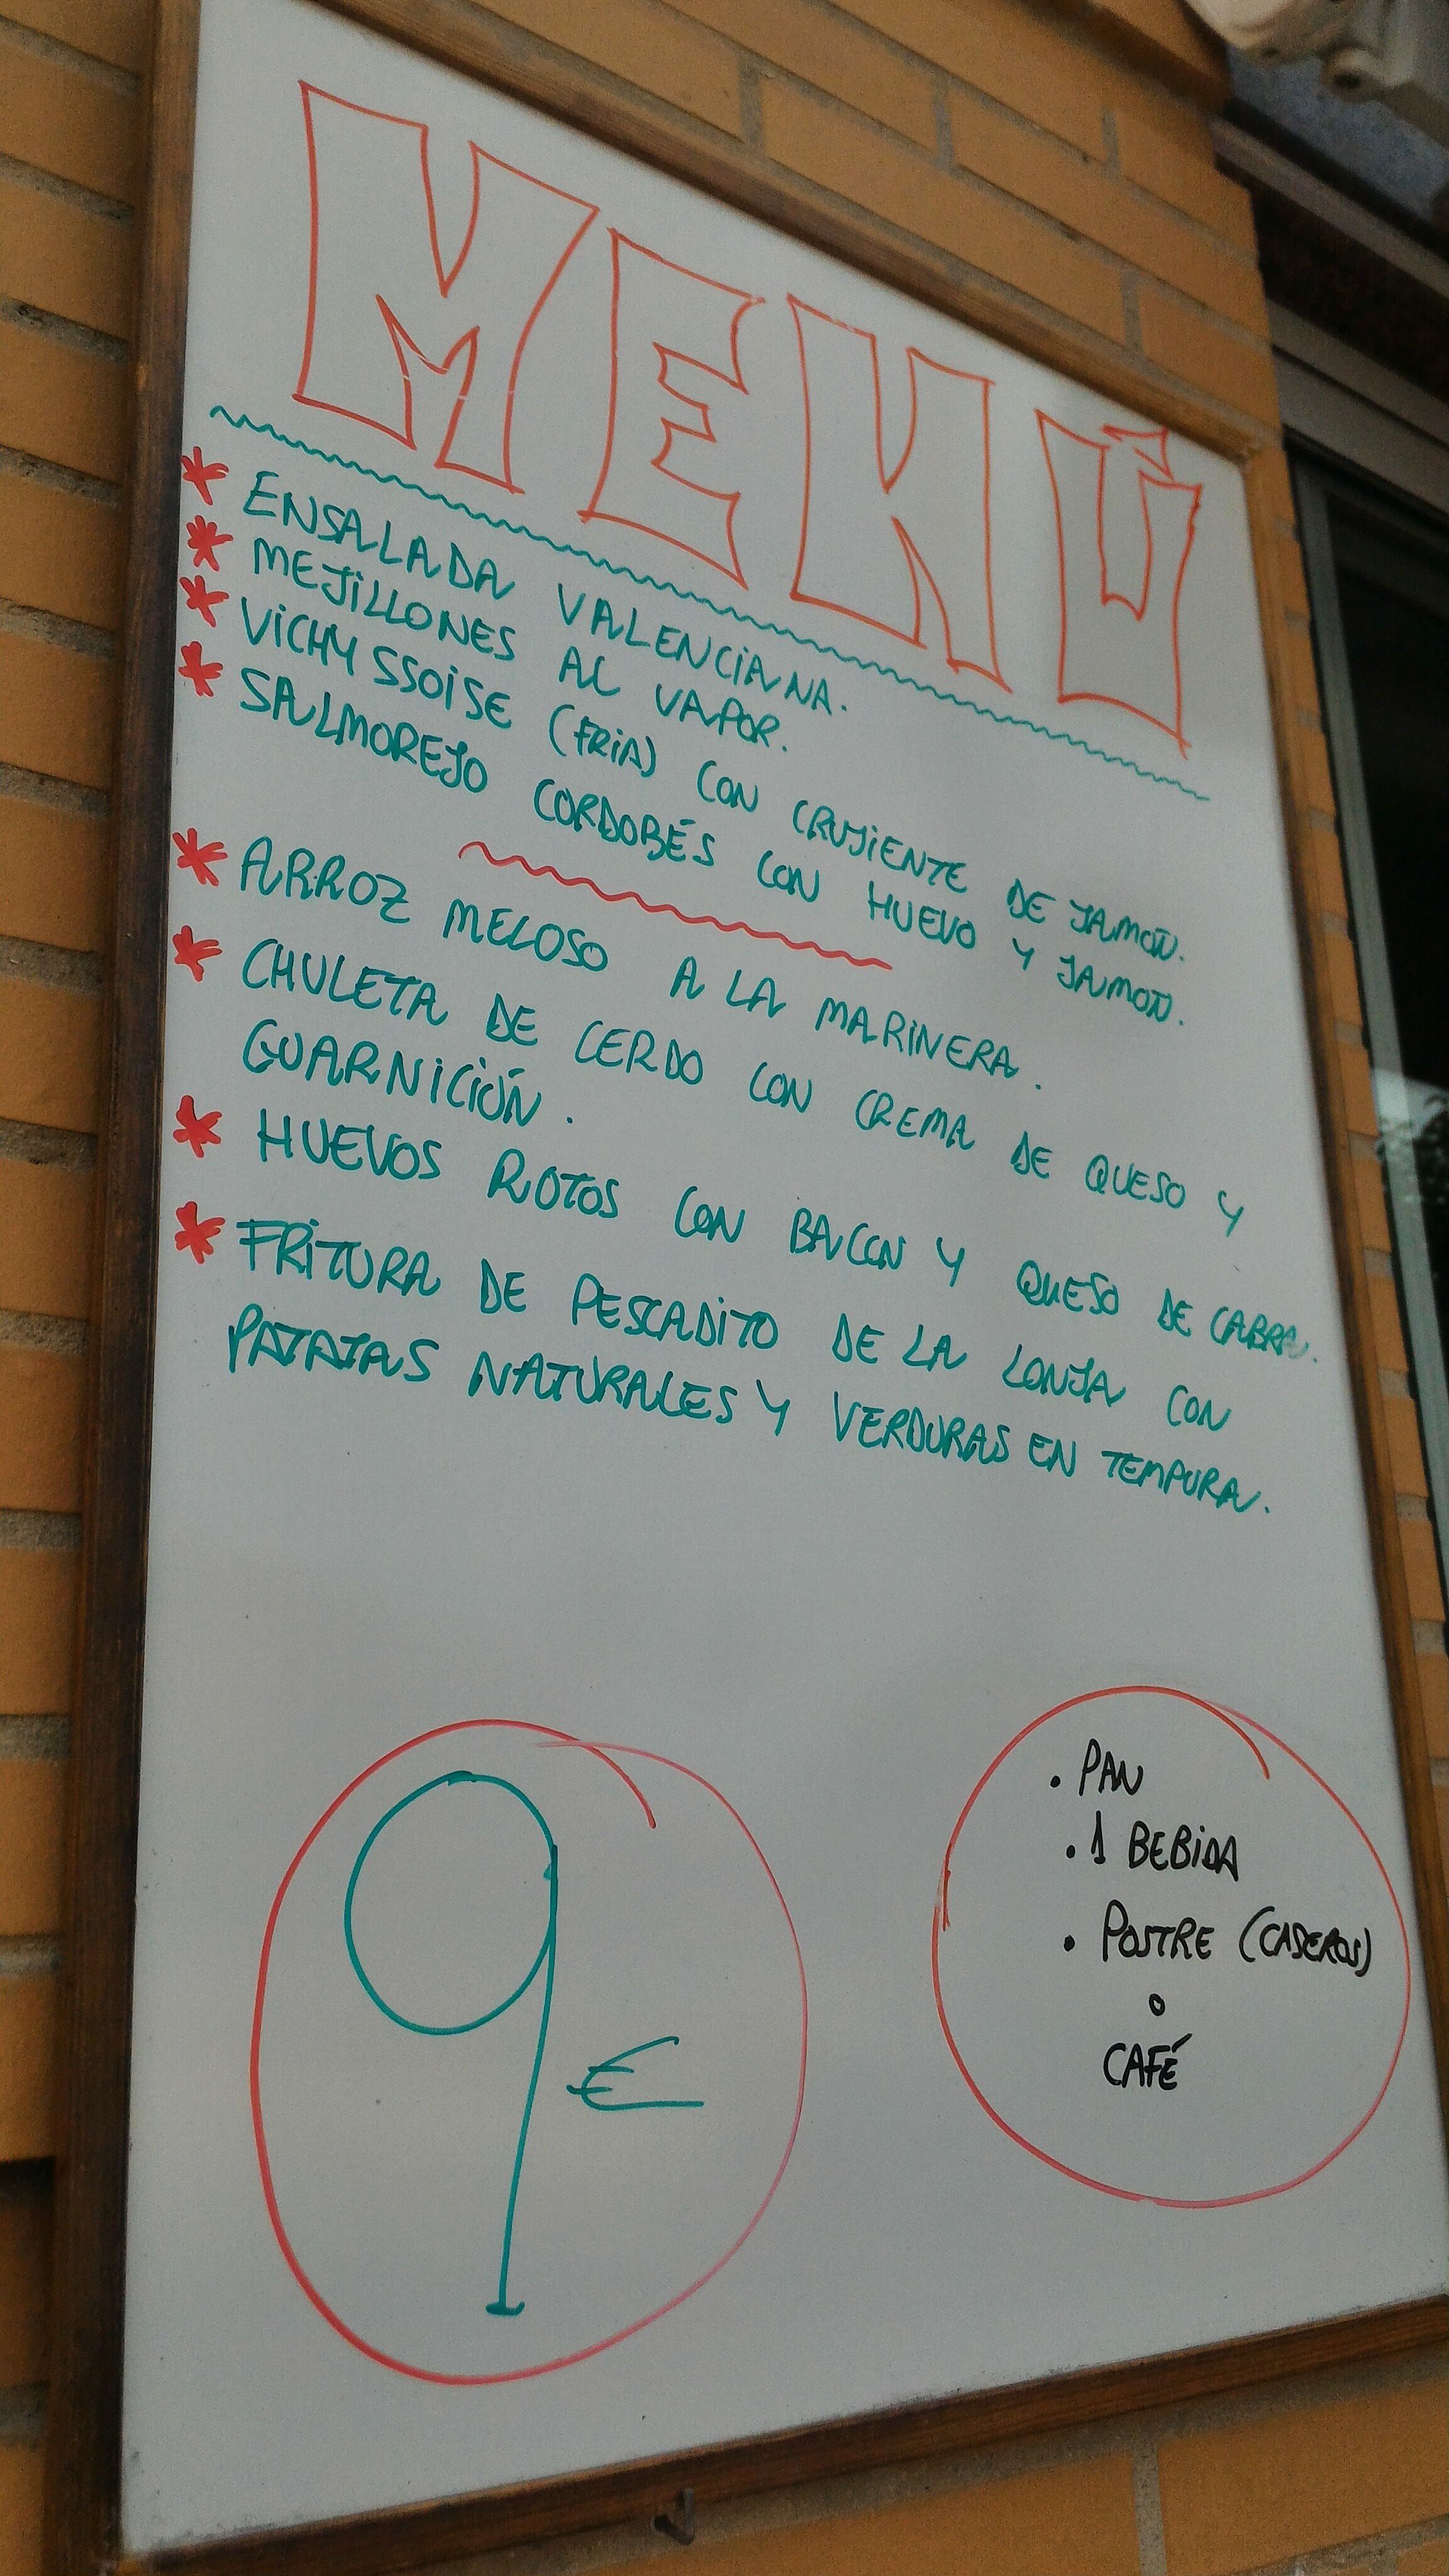 MENÚ
* ENSALADA VALENCIANA.
* MEJILLONES AL VAPOR.
* VICHYSSOISE (FRIA) CON CRUJIENTE DE JAMÓN.
* SALMOREJO CORDOBÉS CON HUEVO Y JAMÓN.
* ARROZ MELOSO A LA MARINERA.
* CHULETA DE CERDO CON CREMA DE QUESO Y
GUARNICIÓN.
* HUEVOS ROTOS CON BAICON Y QUESO DE CABRA.
* FRITURA DE PESCADITO DE LA LONJA CON
PATATAS NATURALES Y VERDURAS EN TEMPURA.
9 €
. PAN
. 1 BEBIDA
. POSTRE (CASEROS)
o
CAFÉ